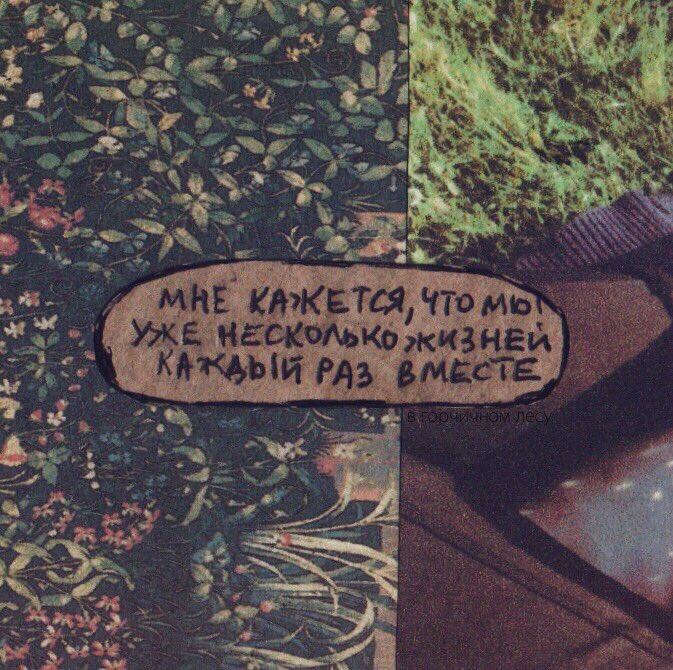 МНЕ КАЖЕТСЯ, ЧТО МЫ
УЖЕ НЕСКОЛЬКО ЖИЗНЕЙ
КАЖДЫЙ РАЗ ВМЕСТЕ
в горчичном лесу